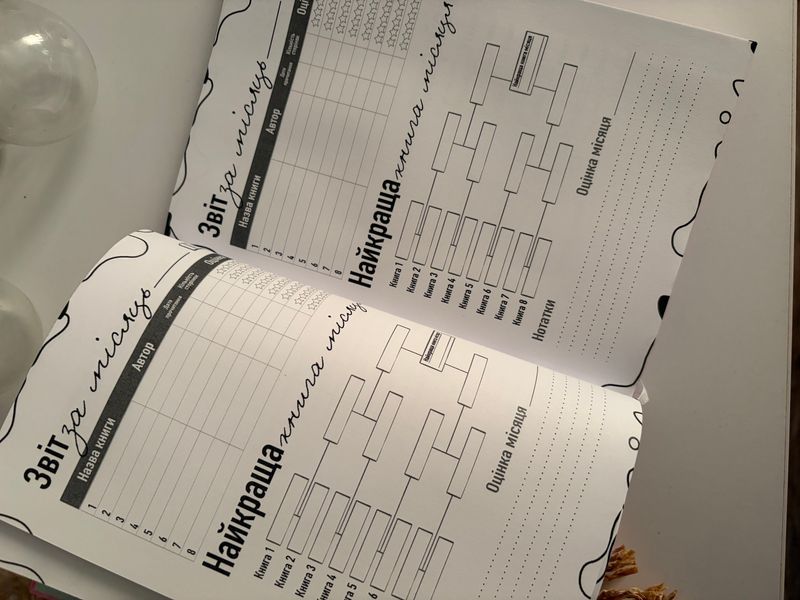 Звіт за місяць
Назва книги Автор Дата прочитання Кількість сторінок
1
2
3
4
5
6
7
8
Найкраща книга місяця
Книга 1
Книга 2
Книга 3
Книга 4
Книга 5
Книга 6
Книга 7
Книга 8
Найкраща книга місяця
Оцінка місяця
Нотатки
Звіт за місяць
Назва книги Автор Дата прочитання Кількість сторінок
1
2
3
4
5
6
7
8
Найкраща книга
Книга 1
Книга 2
Книга 3
Книга 4
5
6
Найкраща книга місяця
Оцінка місяця